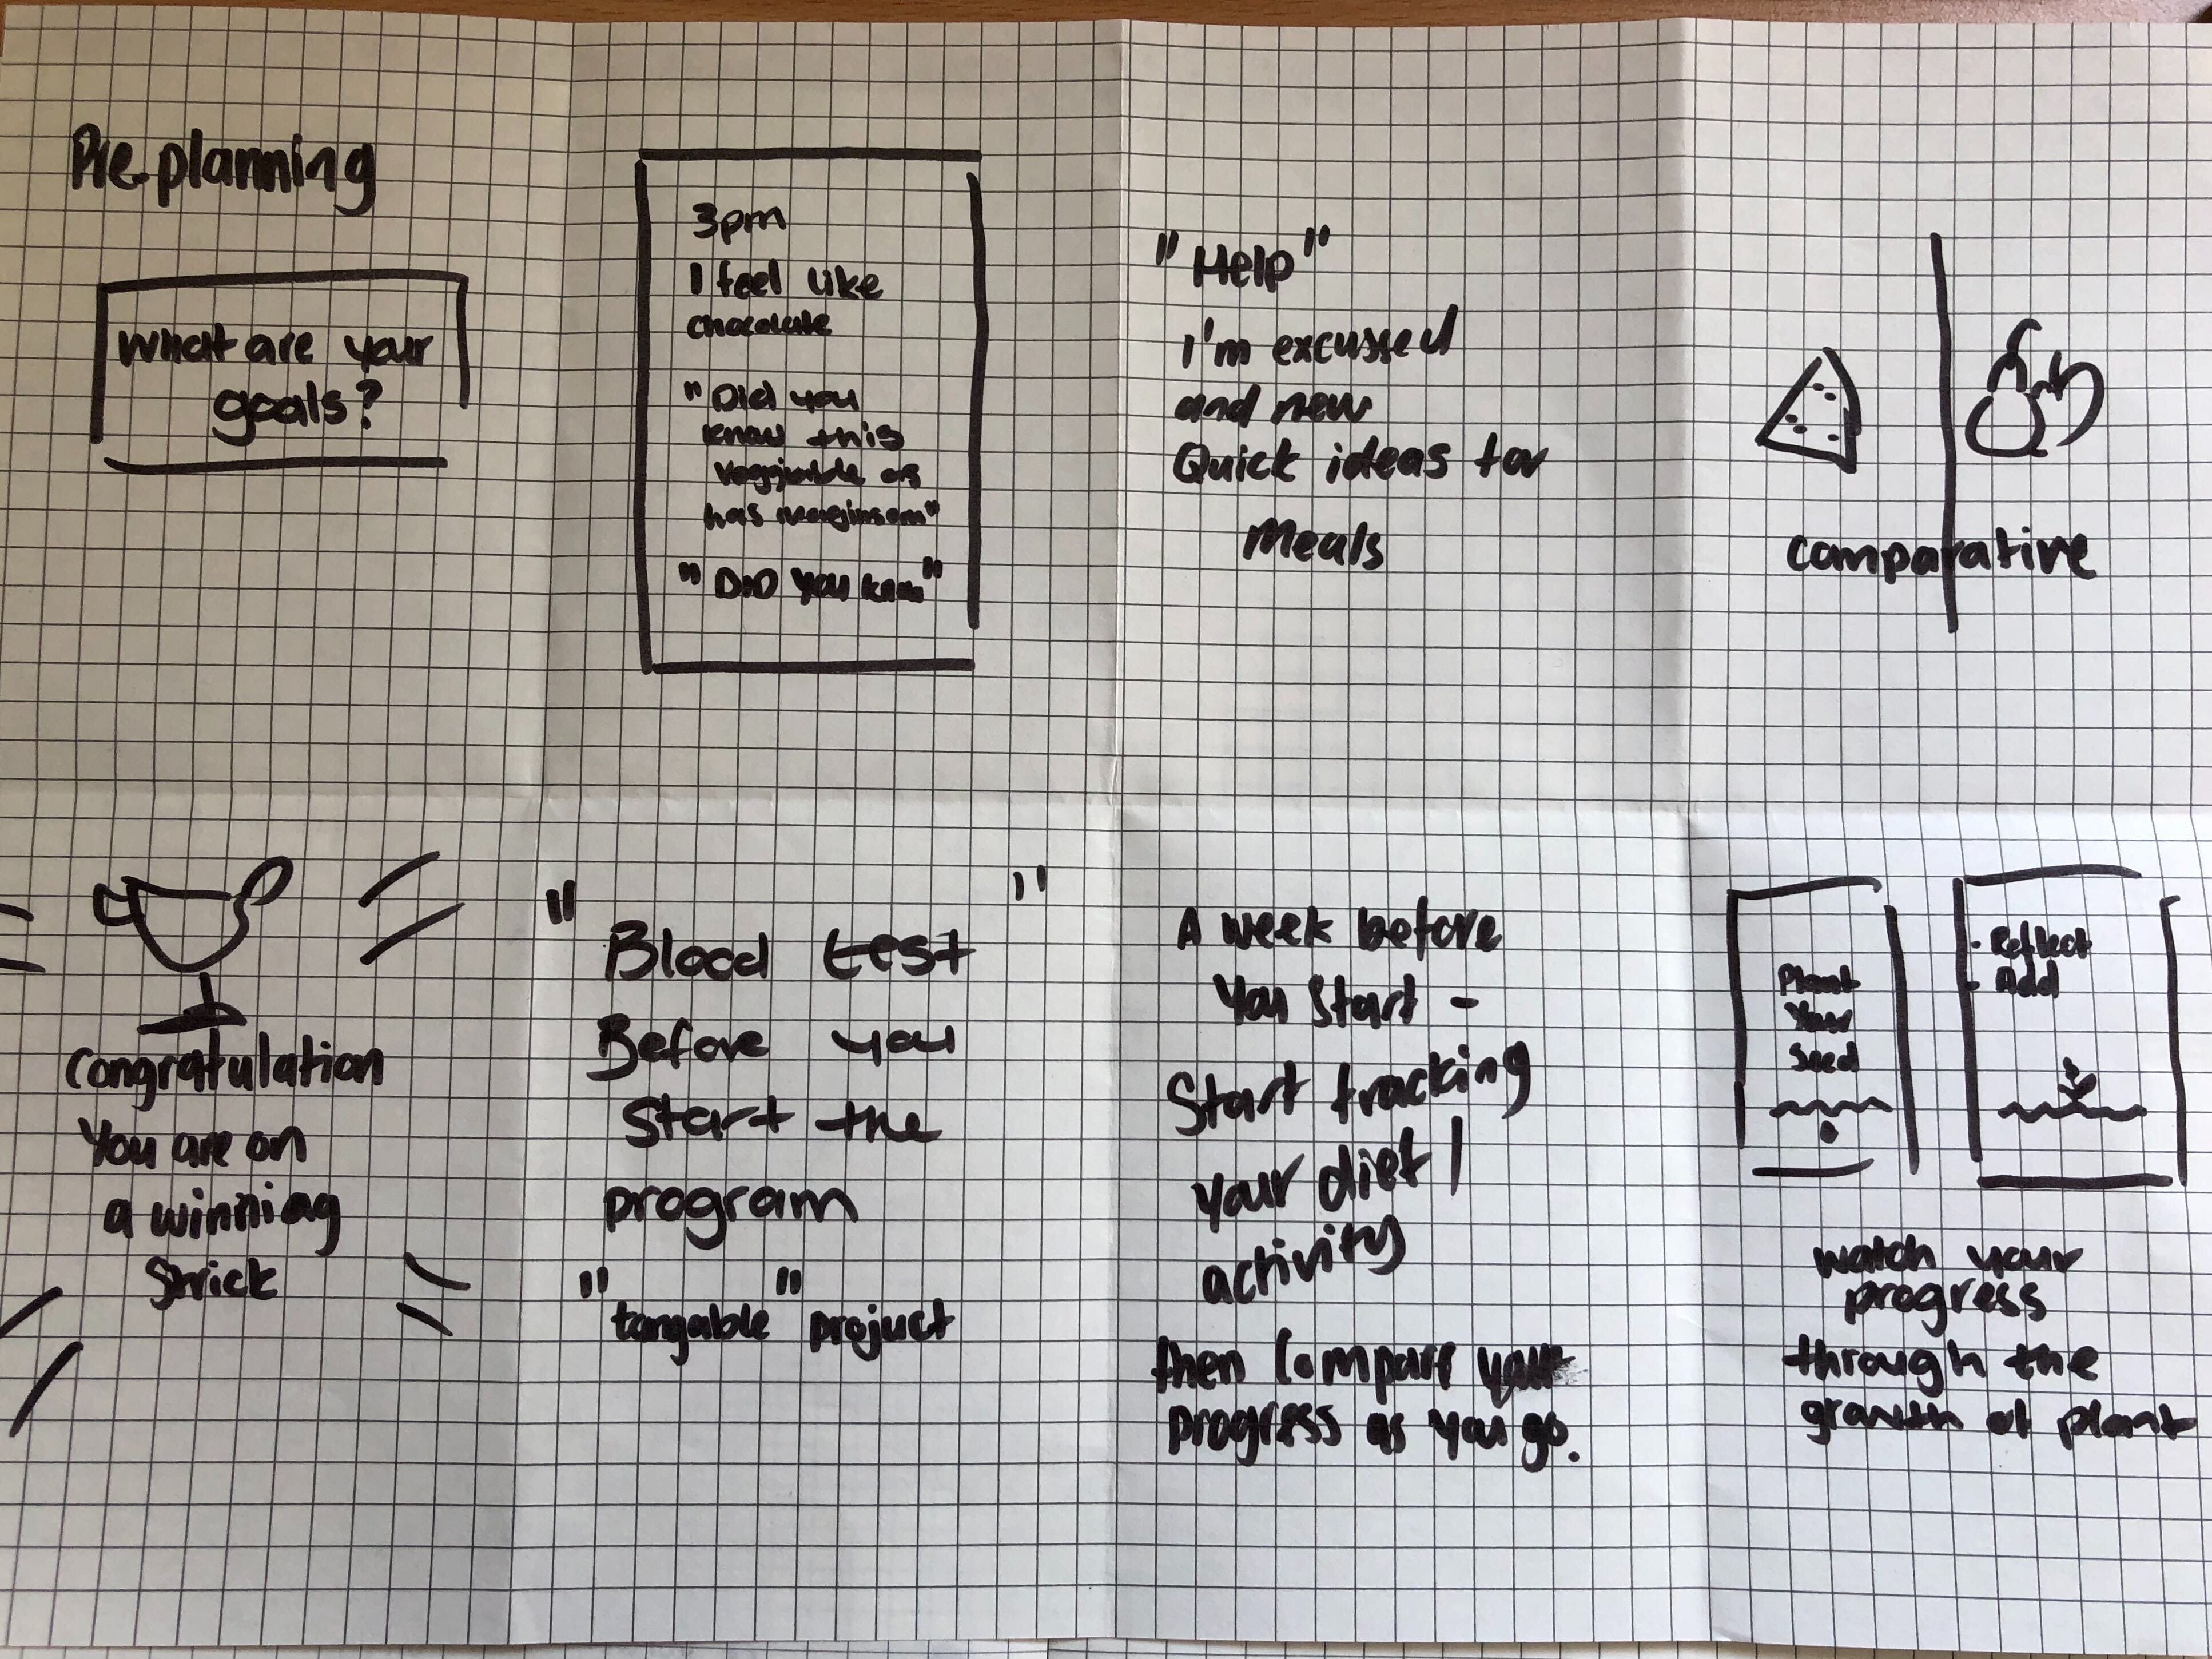 Pre-planning
What are your
goals?
3pm
I feel like
chocolate
"Did you
know this
has
"DID you know"
"Help"
I'm
and new
Quick ideas for
Meals
comparative
Congratulation
You are on
a winning
Strick
"Blood test"
Before you
Start the
program
"tangable" projuct
A week before
You Start -
Start tracking
your diet /
activity
then Compare your
progress as you go.
Plant
Your
Seed
- Reflect
- Add
watch your
progress
through the
growth of plant